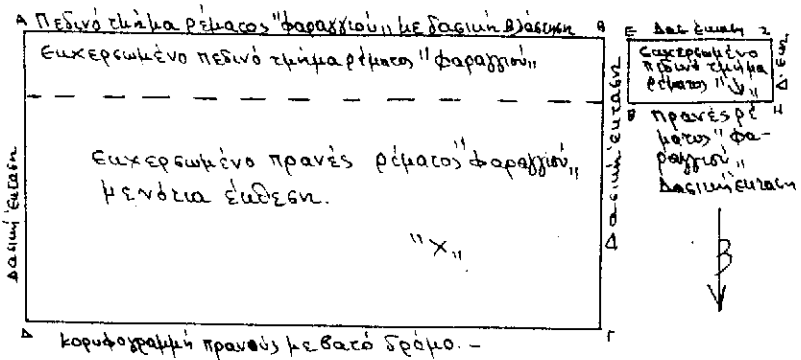 Α Πεδινό τμήμα ρέματος "φαραγγιού" με δασική βλάστηση Β
Εκχερσωμένο πεδινό τμήμα ρέματος "φαραγγιού"
Εκχερσωμένο πρανές ρέματος "φαραγγιού"
με νότια έκθεση.
"Χ"
Δασική έκταση
Δασική έκταση
Δ Γ
κορυφογραμμή πρανούς με βατό δρόμο.-
Ε Δασ. έκταση Ζ
Εκχερσωμένο
πεδινό τμήμα
ρέματος "ψ"
Θ Η
πρανές ρέ
ματος "φα-
ραγγιού"
Δασική έκταση
Β